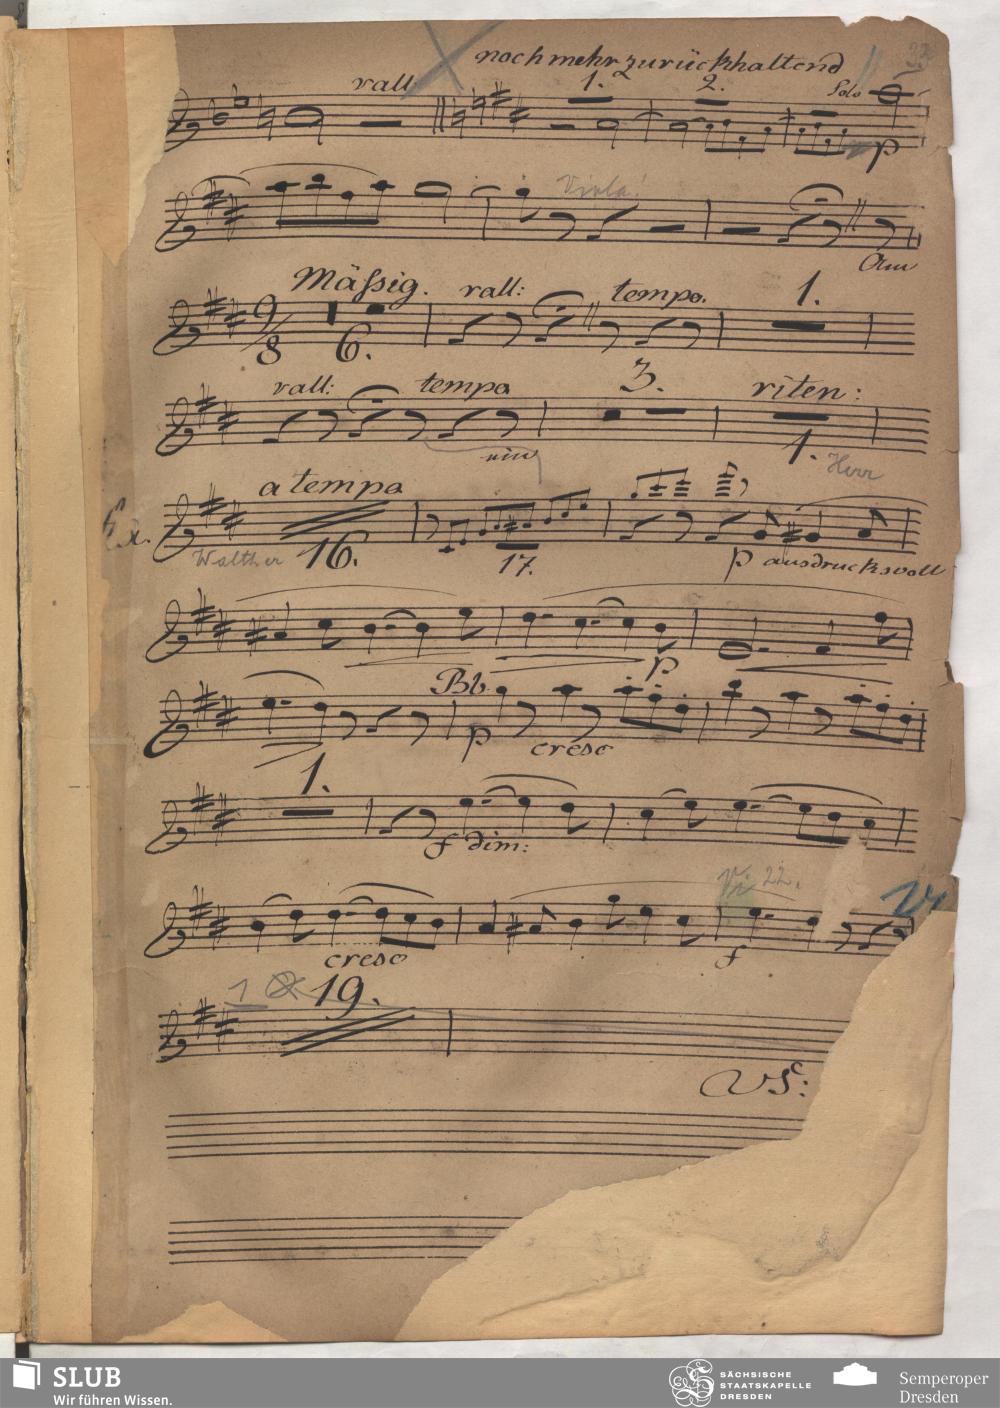 noch mehr zurückhaltend 23
rall. 1. 2. Solo
p
Viola!
Mäßig. rall: tempo. 1.
9/8 6.
rall: tempo 3. riten:
1. Herr
a tempo
Walther 16. 17. p ausdrucksvoll
p
Bb.
p cresc
1.
f dim:
Vi 22.
cresc f
1 19.
VS:
SLUB
Wir führen Wissen.
SÄCHSISCHE
STAATSKAPELLE
DRESDEN
Semperoper
Dresden